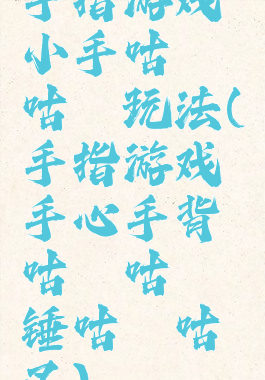 手指游戏
小手咕
咕 玩法(
手指游戏
手心手背
咕 咕
锤咕 咕